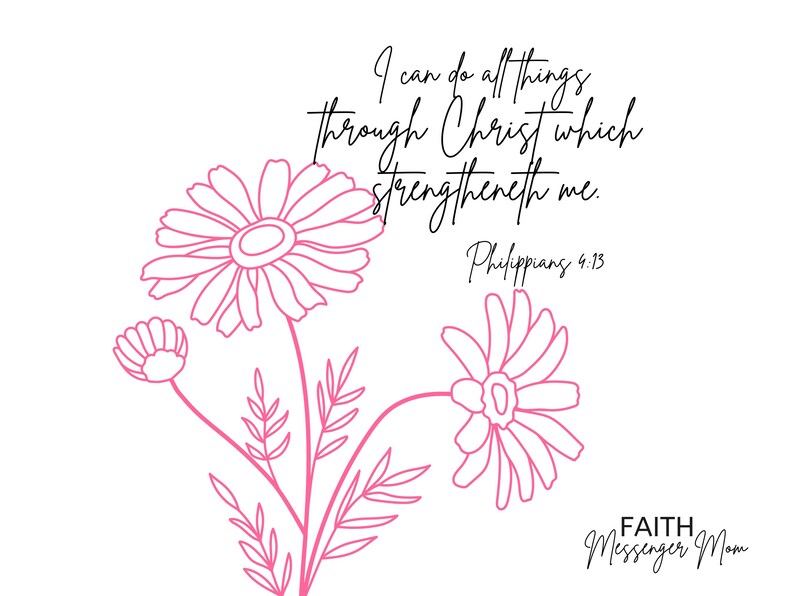 I can do all things
through Christ which
strengtheneth me.
Philippians 4:13
FAITH
Messenger Mom